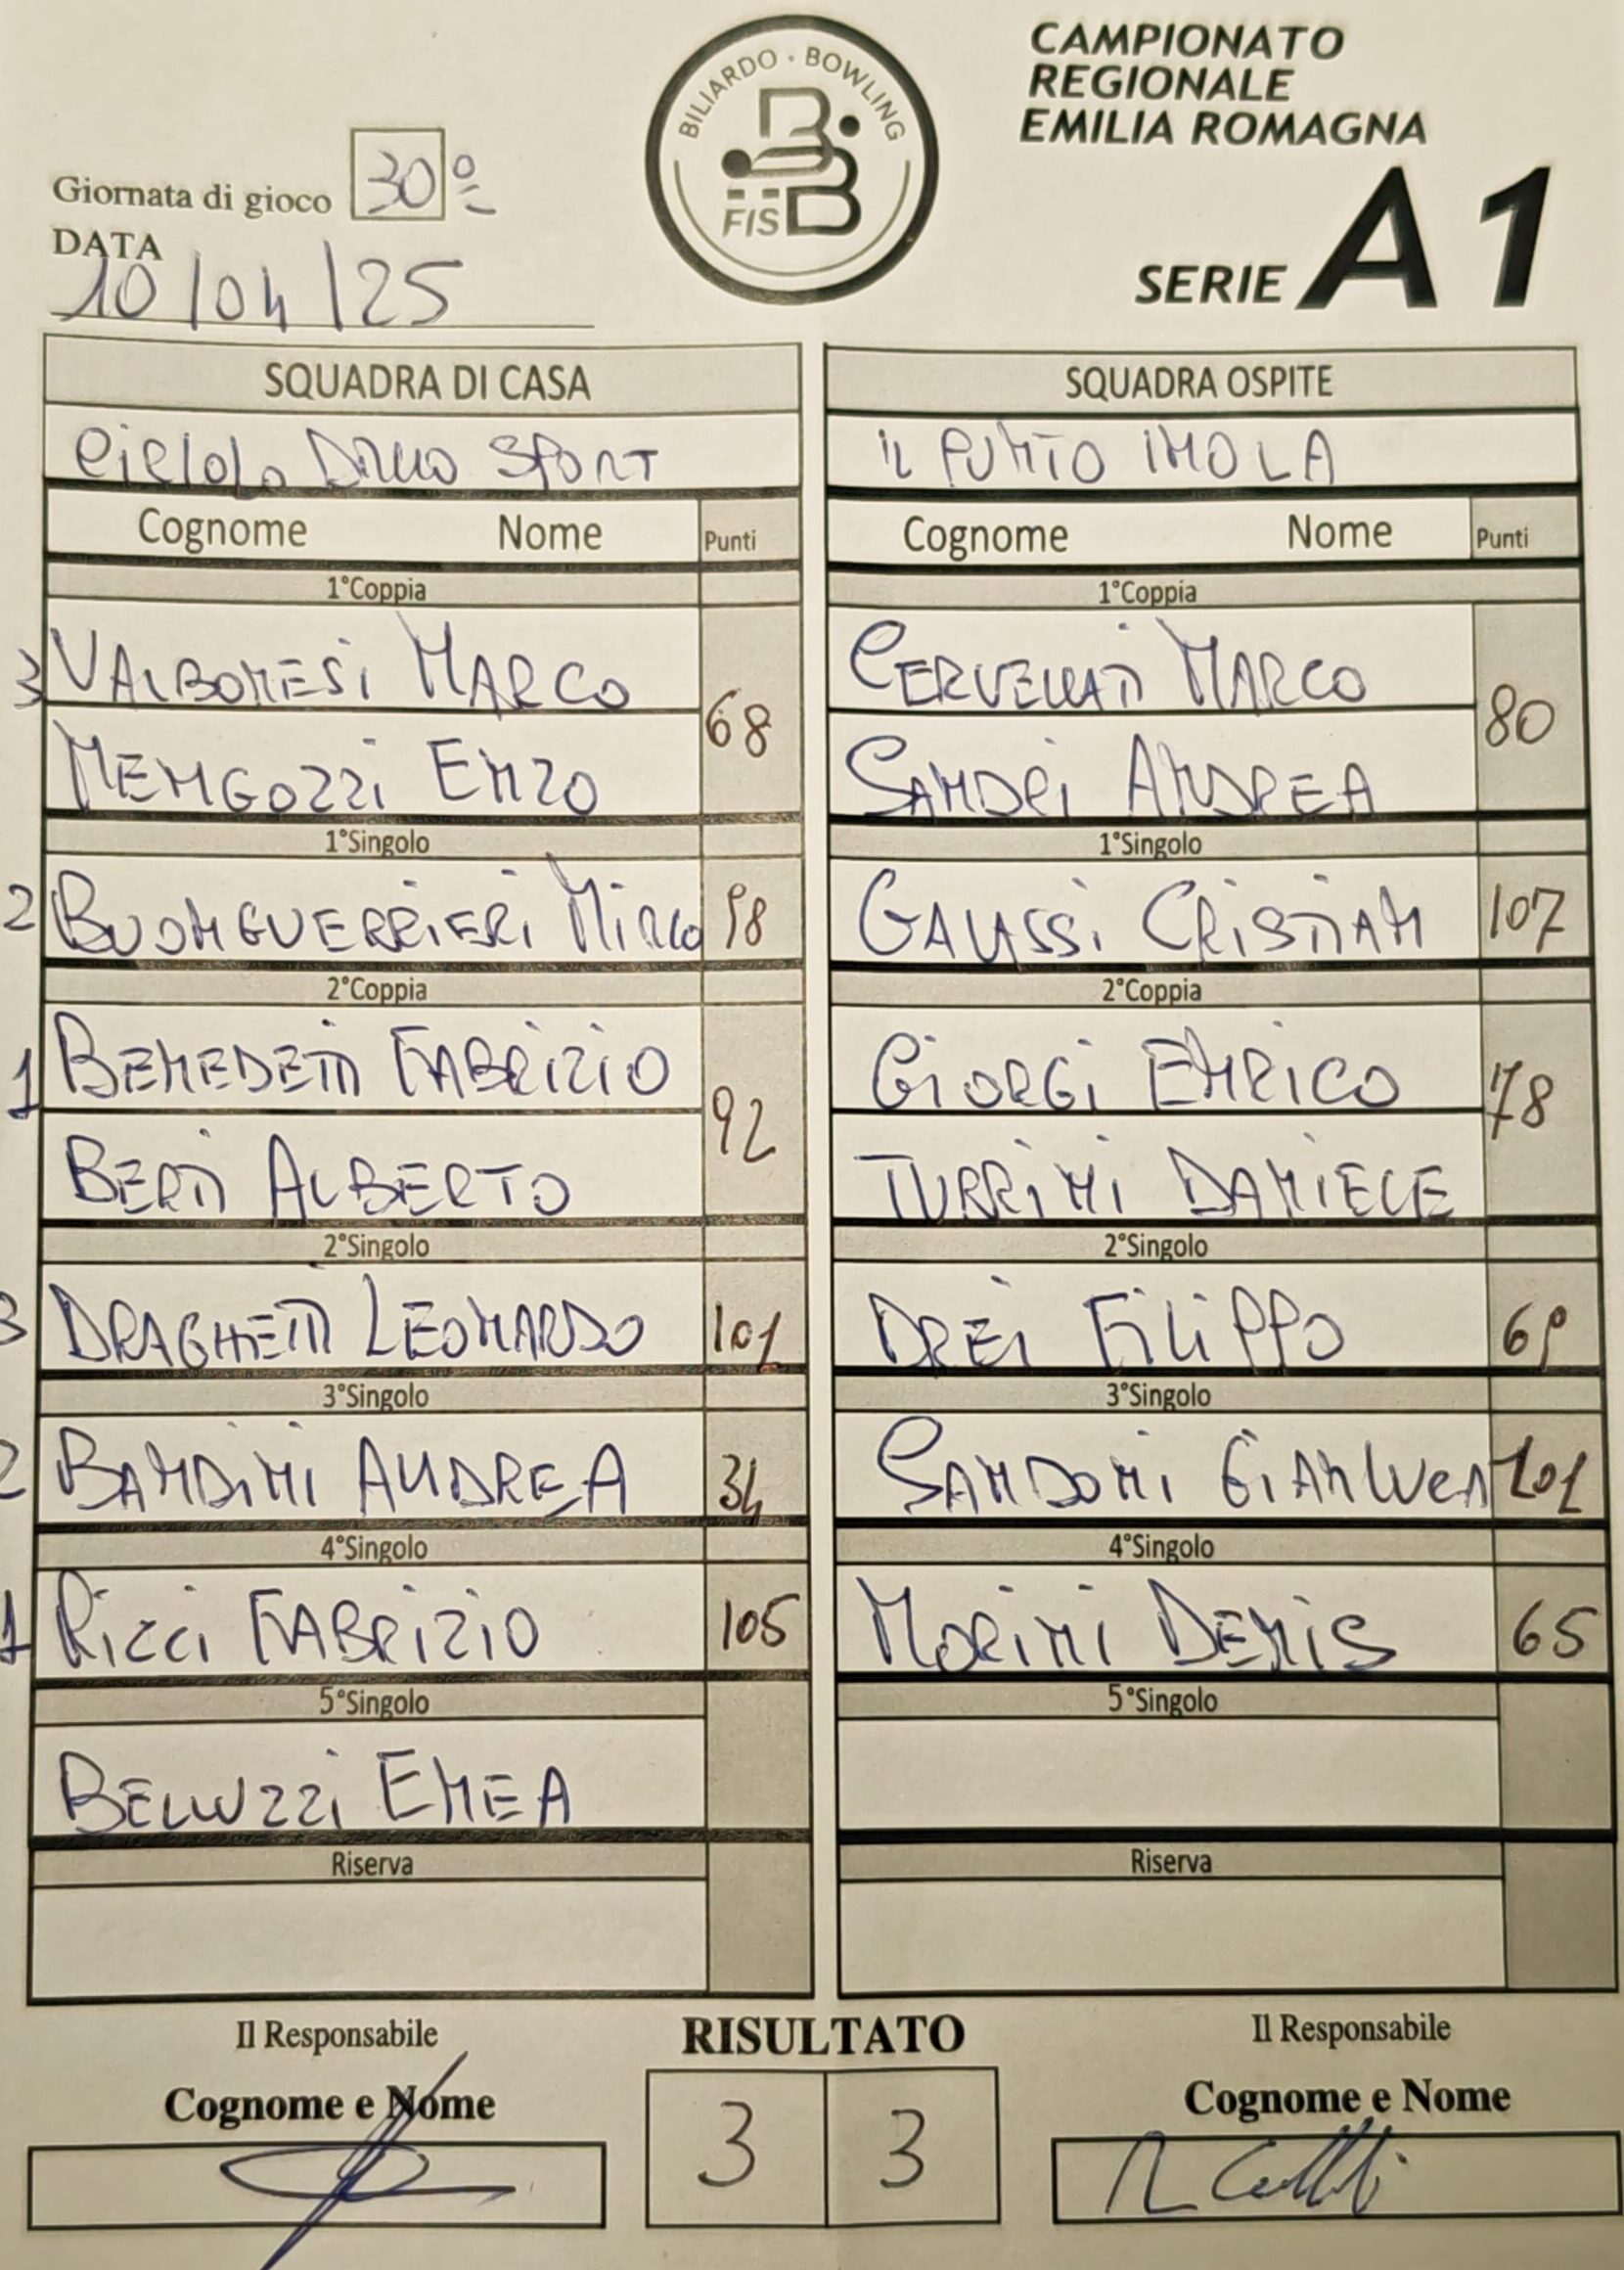 BILIARDO · BOWLING
FISBB
CAMPIONATO
REGIONALE
EMILIA ROMAGNA
SERIE A1
Giornata di gioco 30º
DATA
10/04/25
SQUADRA DI CASA
SPORT
Cognome Nome Punti
1°Coppia
3 VALBONESI MARCO 68
MENGOZZI ENZO
1°Singolo
2 BUONGUERRIERI MIRCO 98
2°Coppia
1 BENEDETTI FABRIZIO 92
BERTI ALBERTO
2°Singolo
3 DRAGHETTI LEONARDO 101
3°Singolo
2 BANDINI ANDREA 34
4°Singolo
1 RICCI FABRIZIO 105
5°Singolo
BELLUZZI ENEA
Riserva
SQUADRA OSPITE
IL PUNTO IMOLA
Cognome Nome Punti
1°Coppia
CERVELLATI MARCO 80
SANDRI ANDREA
1°Singolo
GALASSI CRISTIAN 107
2°Coppia
GIORGI ENRICO 78
TURRINI DANIELE
2°Singolo
DREI FILIPPO 69
3°Singolo
SANDONI GIANLUCA 101
4°Singolo
MORINI DENIS 65
5°Singolo
Riserva
Il Responsabile
Cognome e Nome
RISULTATO
3 3
Il Responsabile
Cognome e Nome